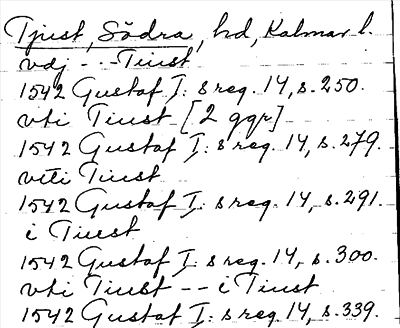 Tjust, Södra, hd, Kalmar l.
vdj - - - Tiust
1542 Gustaf I: s reg. 14, s. 250.
vti Tiust [2 ggr]
1542 Gustaf I: s reg. 14, s. 279.
viti Tiust
1542 Gustaf I: s reg. 14, s. 291.
i Tiwst
1542 Gustaf I: s reg. 14, s. 300.
vti Tiust - - i Tiust
1542 Gustaf I: s reg. 14, s. 339.